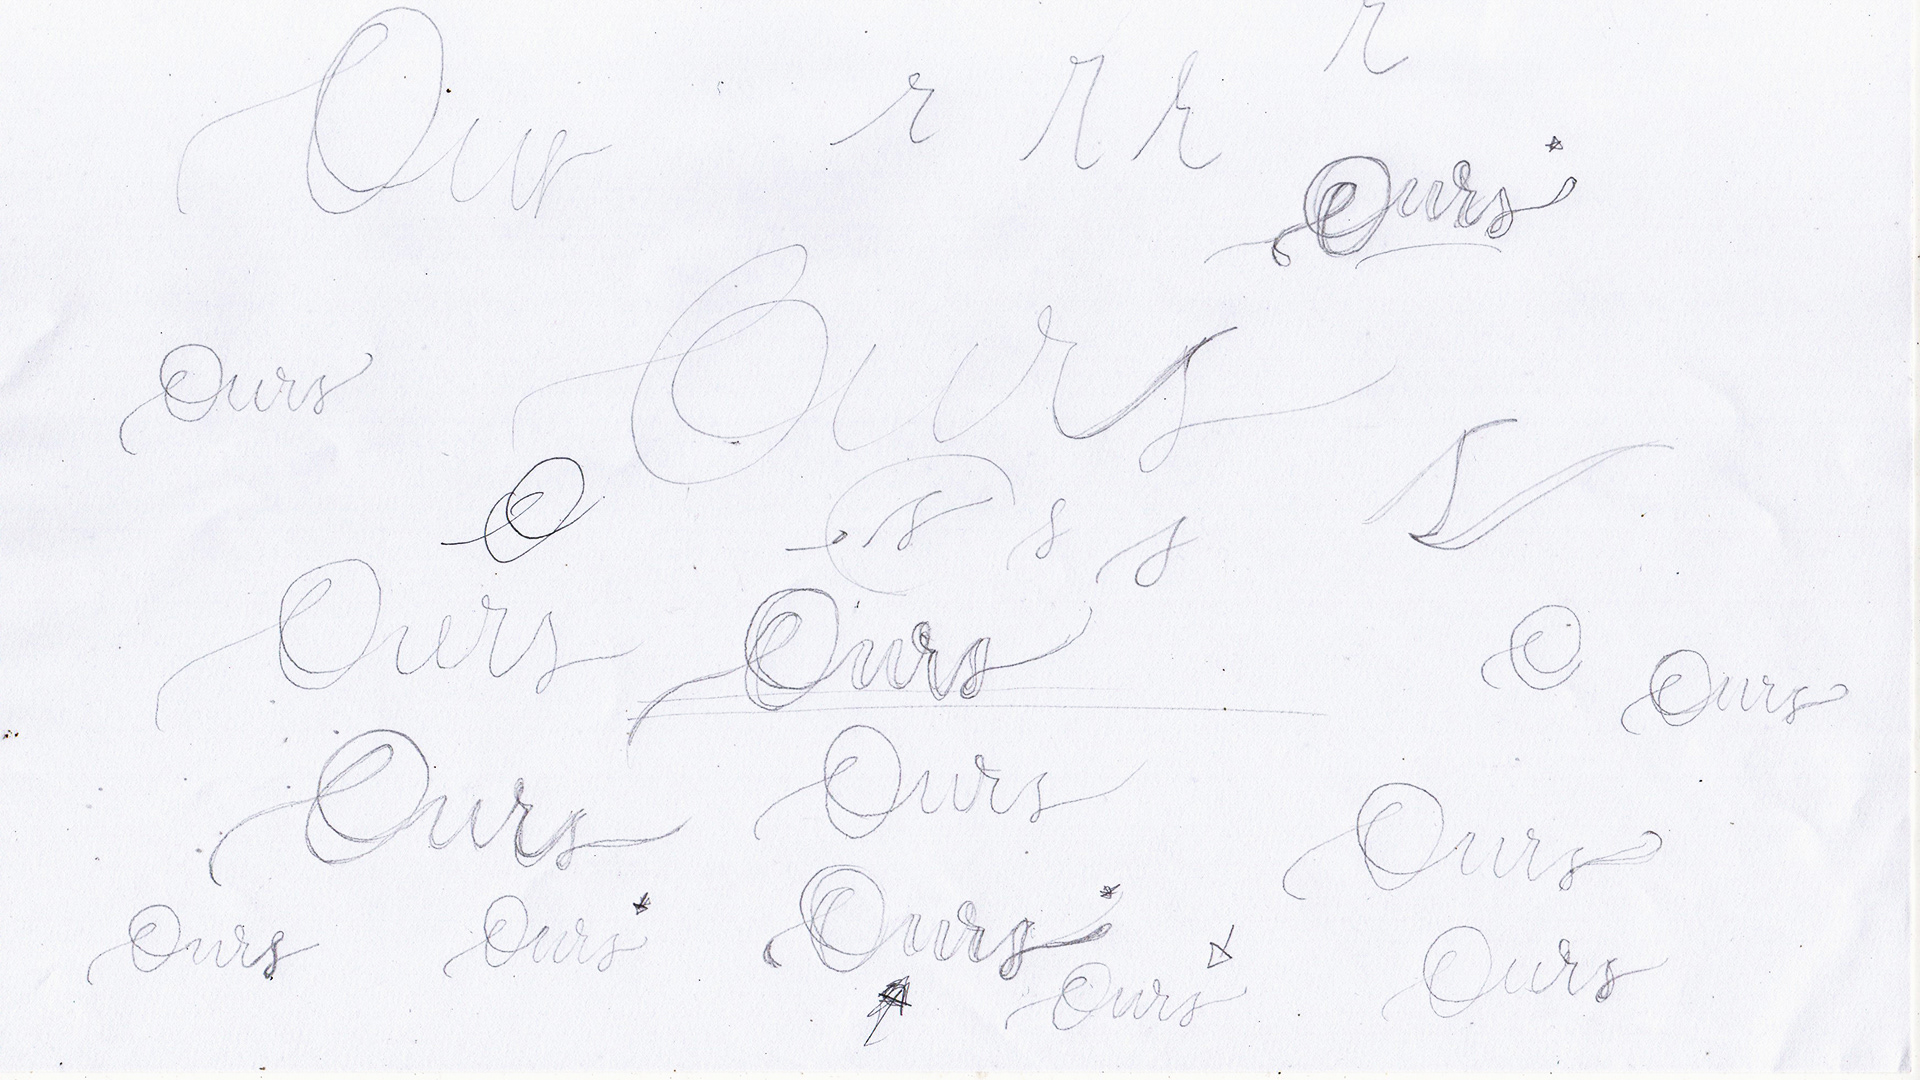 Our r r r r
Ours
Ours
Ours
s
O s s s
Ours Ours
O Ours
Ours Ours
Ours
Ours Ours Ours
Ours Ours